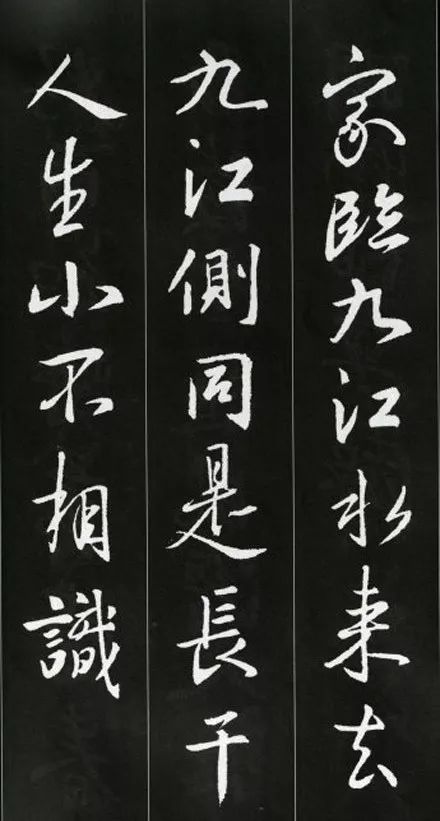 家臨九江水来去
九江側同是長干
人生小不相識